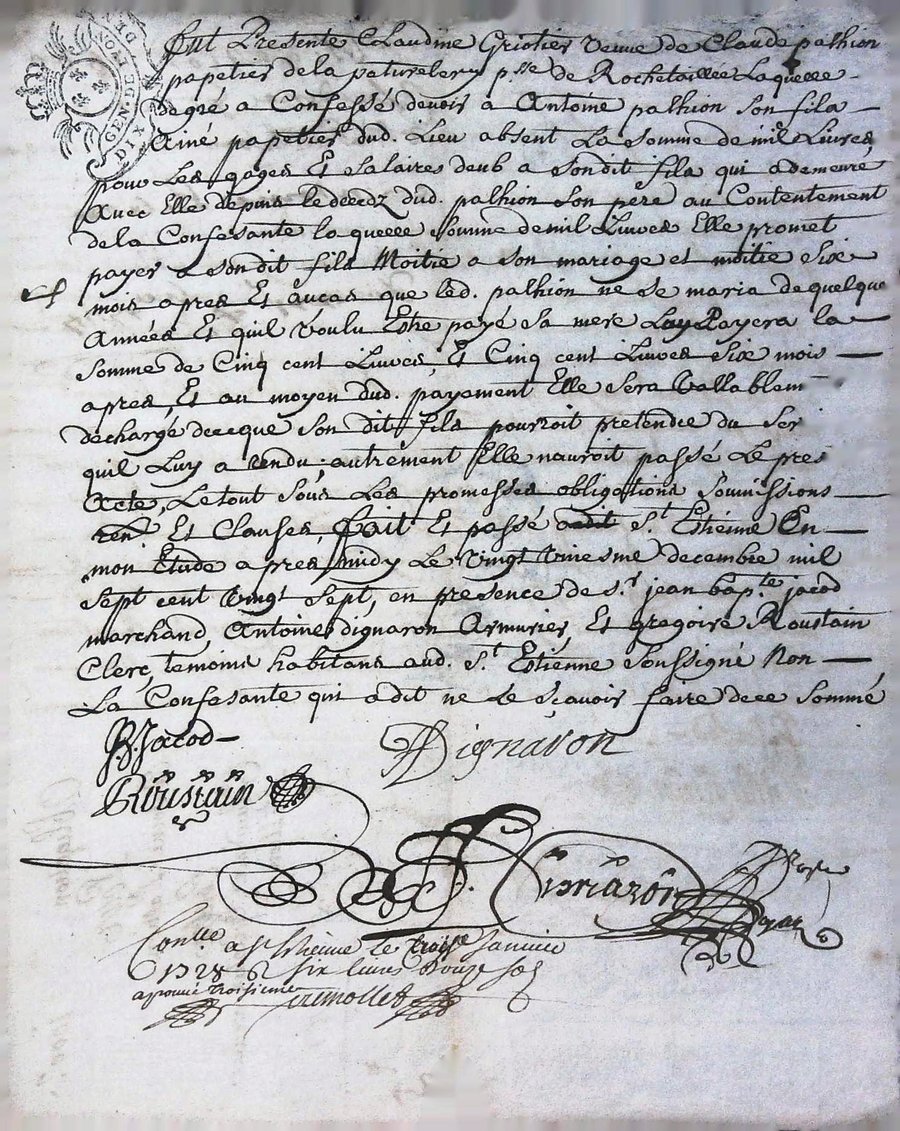 GEN. DE LYON
DIX
fut Presente Claudine Griotier veuve de Claude palhion
papetier de la paturelery psse de Rochetaillée Laquelle
de gré a Confessé devoir a Antoine palhion son fila
Ainé papetier dud. Lieu absent La somme de mil Livres
pour Les gages Et salaires deub a sondit fila qui a demeuré
Avec Elle depuis le decedz dud. palhion son pere au Contentement
de la Confesante la quelle somme de mil Livres Elle promet
payer a son dit fils Moitié a son mariage et moitié Six
mois apres Et aucas que led. palhion ne se maria de quelque
Années Et quil voulu Estre payé sa mere Luy Payera la
somme de Cinq cent Livres, Et Cinq cent Livres Six mois
apres, Et au moyen dud. payement Elle sera vallablem
déchargé de ce que son dit fils pourroit pretendre du ser
quil Luy a rendu, autrement Elle nauroit passé Le pres
Acte, Le tout sous Les promesses obligations soumissions
ren Et Clauses, fait Et passé audit St Estiénne En
mon Etude apres midy Le vingt deceembre mil
Sept cent vingt sept, en presence de sr jean bapte jacod
marchand, Antoine dignaron Armurier, Et gregoire Roustain
Clerc, temoins habitans aud. St Estienne Soussigné Non
La Confesante qui a dit ne Le sçavoir faire de ce Sommé
B. Jacod
A Dignaron
Roustain
Conlle a St Estienne le troise Janvier
1728 six livres douze sos